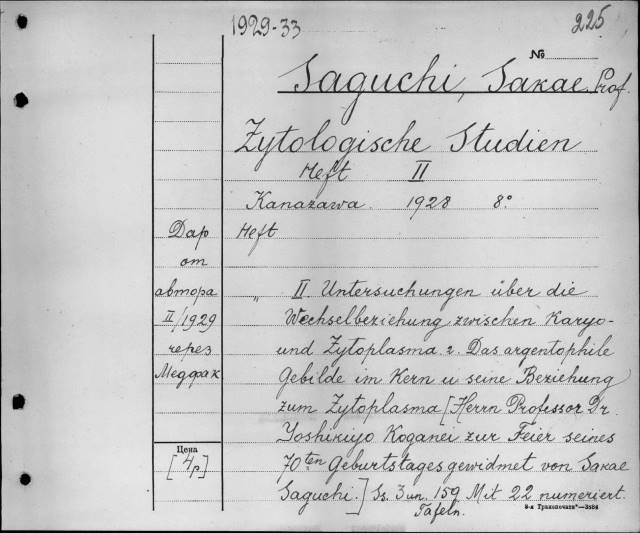 1929-33
225
№
Saguchi, Sakae Prof.
Zytologische Studien
Heft II
Kanazawa. 1928 8°
Heft
Дар
от
автора
II/1929
через
Медфак
Цена
[4р]
„ II. Untersuchungen über die
Wechselbeziehung zwischen Karyo-
und Zytoplasma. 2. Das argentophile
Gebilde im Kern u seine Beziehung
zum Zytoplasma [Herrn Professor Dr.
Yoshikiyo Koganei zur Feier seines
70ten Geburtstages gewidmet von Sakae
Saguchi.] Ss. 3 un. 159 Mit 22 numeriert.
Tafeln.
3-я Транспечать"—3584